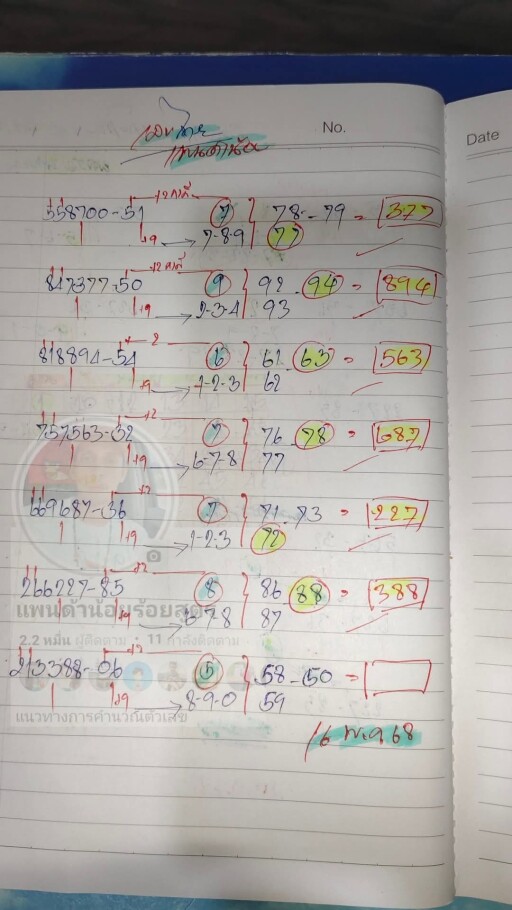 No.
Date
+2 คงที่
558700-51 7 78-79 = 377
+9 → 7-8-9 77
+2 คงที่
847377-50 9 92 94 = 894
+9 → 2-3-4 93
+2
818894-54 6 61 63 = 563
+9 → 1-2-3 62
+2
757563-32 7 76 78 = 687
+9 → 6-7-8 77
+2
669687-36 7 71 73 = 227
+9 → 1-2-3 72
+2
266227-85 8 86 88 = 388
+9 → 6-7-8 87
แพนด้าน้อยร้อยสูตร
2.2 หมื่น ผู้ติดตาม · 11 กำลังติดตาม
+2
213388-06 5 58-50 =
+9 → 8-9-0 59
แนวทางการคำนวณตัวเลข
16 พ.ค 68